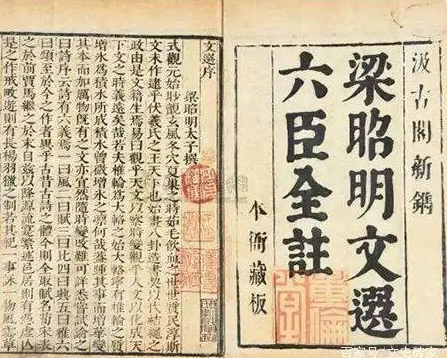 汲古閣新鐫
梁昭明文選
六臣全註
本衙藏板
文選序
梁昭明太子撰
式觀元始眇覿玄風冬穴夏巢之時茹毛飲血之世世質民淳斯
文未作逮乎伏羲氏之王天下也始畫八卦造書契以代結繩之
政由是文籍生焉易曰觀乎天文以察時變觀乎人文以化成天
下文之時義遠矣哉若夫椎輪為大輅之始大輅寧有椎輪之質
增冰為積水所成積水曾微增冰之凜何哉蓋踵其事而增華變
其本而加厲物既有之文亦宜然隨時變改難可詳悉嘗試論之
曰詩序云詩有六義焉一曰風二曰賦三曰比四曰興五曰雅六
曰頌至於今之作者異乎古昔古詩之體今則全取賦名荀宋表
之於前賈馬繼之於末自茲以降源流實繁述邑居則有憑虛亡
是之作戒畋遊則有長楊羽獵之制若其紀一事詠一物風雲草